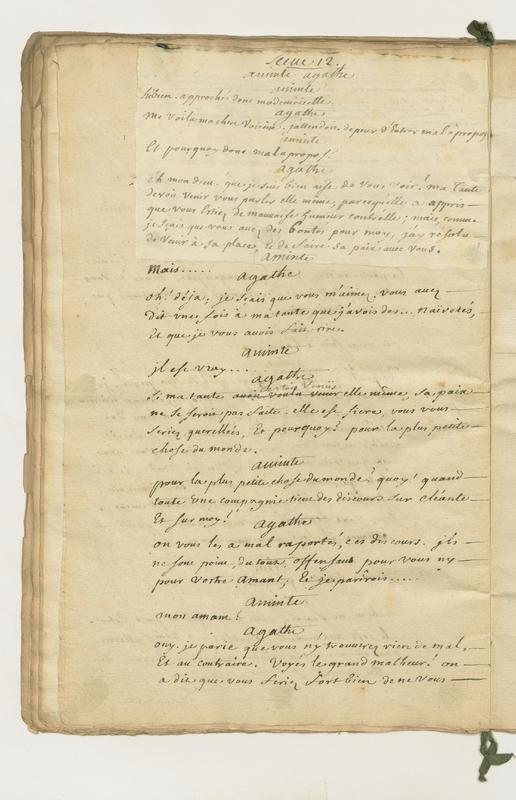 Scene 12.
aminte agathe
aminte
hébien. approchés donc mademoiselle.
agathe
me voila ma chere voisine. j'attendois. de peur d'Entrer mal à propos
aminte
Et pourquoy donc mal a propos?
agathe
eh mon dieu. que je suis bien aise. de vous voir! ma tante
devoit venir vous parler elle même, parcequ'elle a appris
que vous Etiez de mauvaise humeur contr'elle; mais, comme
je sçais que vous avez des bontés pour moy, j'ay résolu
de venir à sa place, et de faire sa paix avec vous.
aminte
Mais.....
agathe
oh! déja, je sçais que vous m'aimez. vous avez
dit une fois à ma tante que j'avois des... naivetés,
Et que je vous avois fait rire.
aminte
il est vray....
agathe
si ma tante avoit voulu venir elle même, sa paix
ne se seroit pas faite. elle est fiere, vous vous
seriez querellées, Et pourquoy? pour la plus petite
chose du monde.
aminte
pour la plus petite chose du monde? quoy! quand
toute une compagnie tient des discours sur cléante
Et sur moy!
agathe
on vous les a mal raportés, ces discours. ils
ne sont point, du tout, offensans pour vous ny
pour vostre amant; Et je parirois.....
aminte
mon amant!
agathe
ouy. je parie que vous n'y trouverez rien de mal,
Et au contraire. Voyés le grand malheur! on
a dit que vous feriez fort bien de ne vous